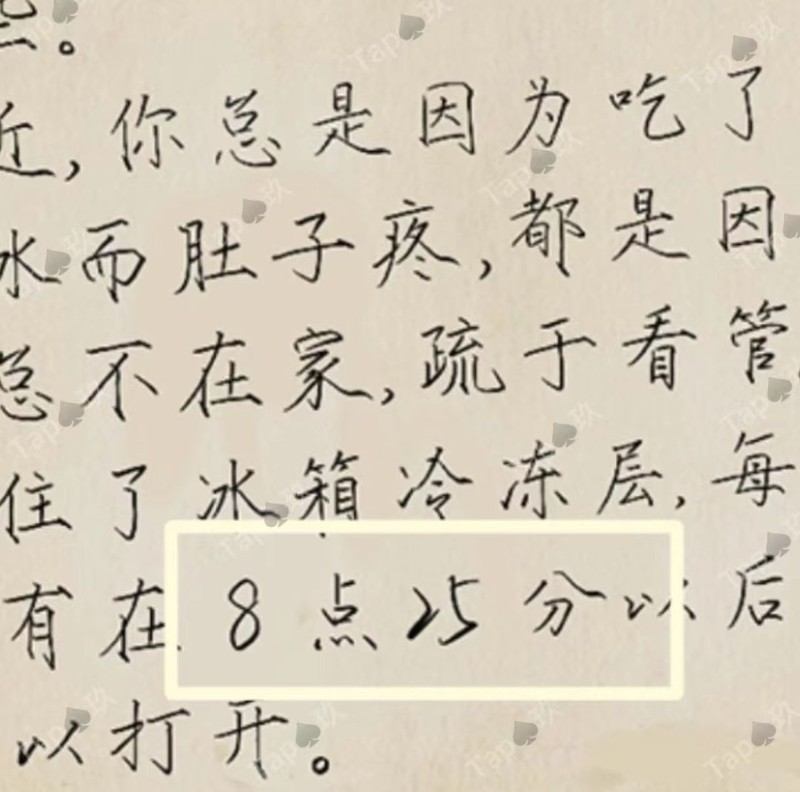 。
近，你总是因为吃了
冰而肚子疼，都是因
总不在家，疏于看管，
住了冰箱冷冻层，每
有在8点25分以后
以打开。
Tap玖